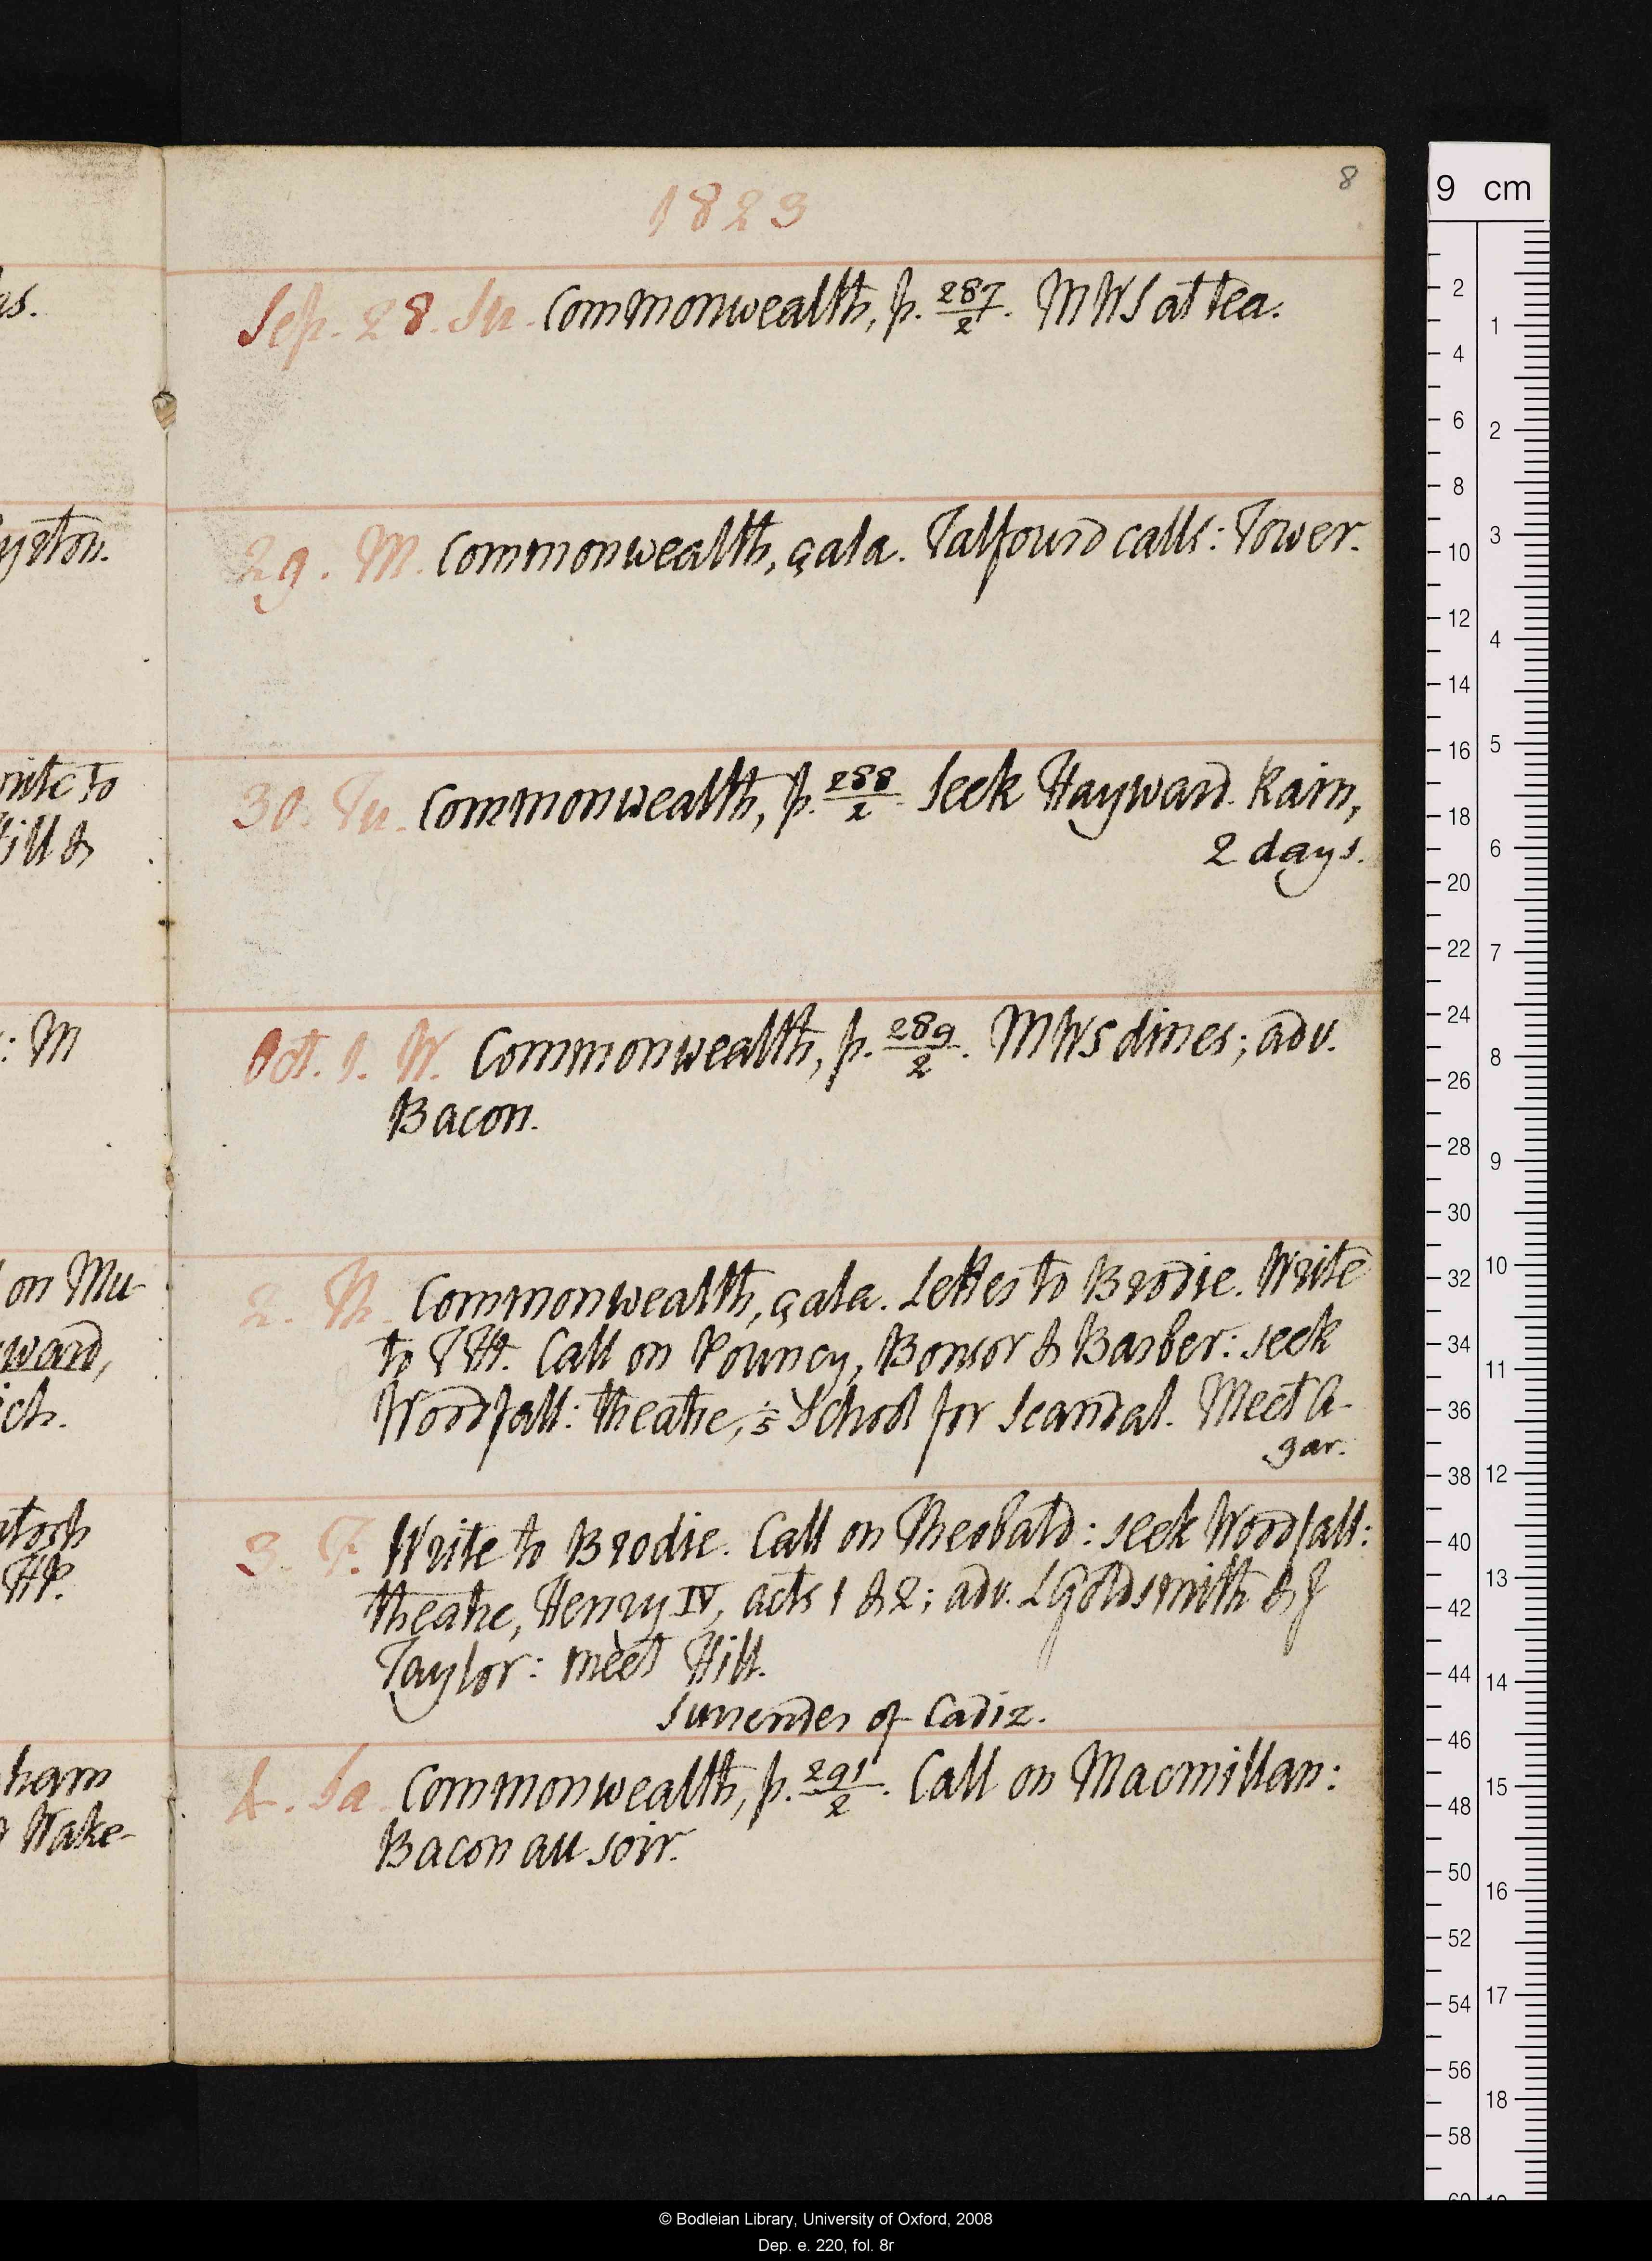 8
1823
as.
Sep. 28. Su. Commonwealth, p. 287/2. MWS at tea.
yston.
29. M. Commonwealth, çala. Talfourd calls: Tower.
write to
Hill &
30. Tu. Commonwealth, p. 288/2. Seek Hayward. Rain,
2 days.
: M
Oct. 1. W. Commonwealth, p. 289/2. MWS dines; adv.
Bacon.
on Mu-
ward,
ch.
2. Th. Commonwealth, çala. Letter to Brodie. Write
to TTH. Call on Pouncy, Bonsor & Barber: seek
Woodfall: theatre, School for Scandal. Meet A-
gar.
ntosh
HP.
3. F. Write to Brodie. Call on Theobald: seek Woodfall:
theatre, Henry IV, acts 1 & 2; adv. L Goldsmith & J
Taylor: meet Hill.
Surrender of Cadiz.
ham
Wake-
4. Sa. Commonwealth, p. 291/2. Call on Macmillan:
Bacon au soir.
9 cm
2
4
6
8
10
12
14
16
18
20
22
24
26
28
30
32
34
36
38
40
42
44
46
48
50
52
54
56
58
1
2
3
4
5
6
7
8
9
10
11
12
13
14
15
16
17
18
© Bodleian Library, University of Oxford, 2008
Dep. e. 220, fol. 8r